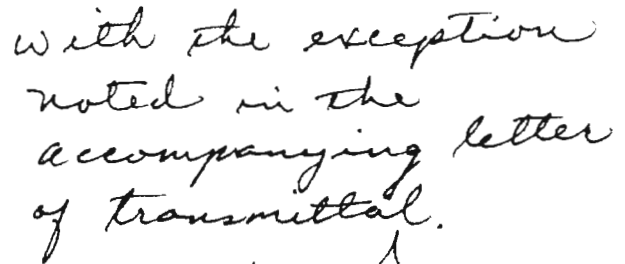 with the exception
noted in the
accompanying letter
of transmittal.